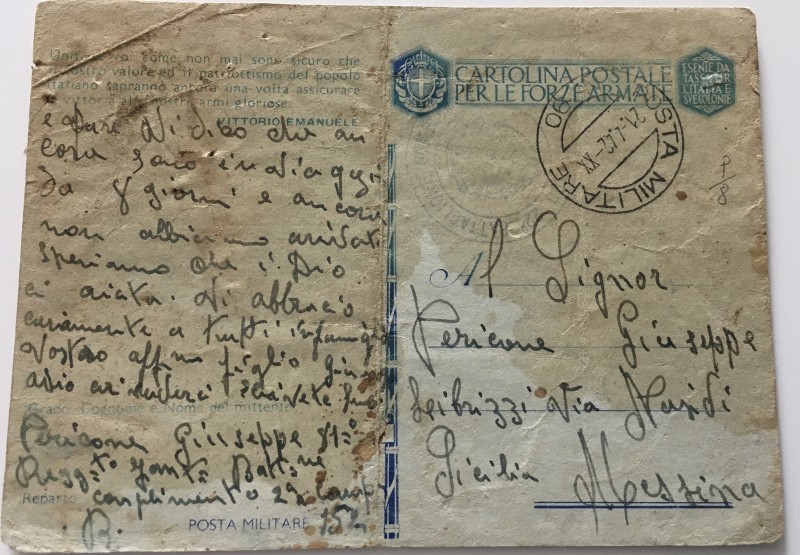 come non mai sono sicuro che
valore ed il patriottismo del popolo
italiano sapranno ancora una volta assicurare
vittoria armi gloriose.
VITTORIO EMANUELE
e dire vi dico che an
cora sono in viaggi
da 8 giorni e ancora
non abbiamo arivati
speriamo che i Dio
ci aiuta. Vi abbracio
caramente a tutti infamiglia
Vostro affmo figlio
adio arivederci scrivete
Grado, Cognome e Nome del mittente
Pericone Giuseppe 81º
Regg.to fant.
Reparto complimento 2ª comp
POSTA MILITARE 152
CARTOLINA POSTALE
PER LE FORZE ARMATE
ESENTE DA
TASSE PER
L'ITALIA E
SVE COLONIE
POSTA MILITARE
P/8
Al Signor
Pericone Giuseppe
Leibrizzi Via Nardi
Sicilia Messina